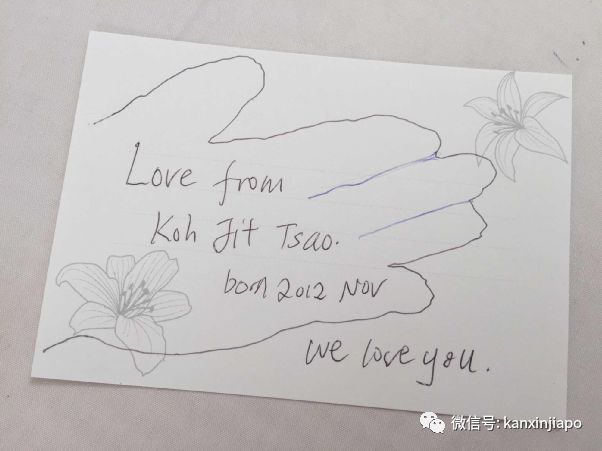 Love from
Koh Jit Tsao.
born 2012 Nov
we love you.
微信号: kanxinjiapo